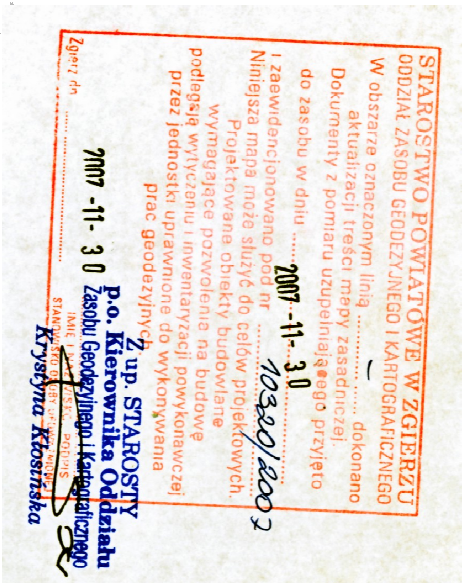 STAROSTWO POWIATOWE W ZGIERZU
ODDZIAŁ ZASOBU GEODEZYJNEGO I KARTOGRAFICZNEGO
W obszarze oznaczonym linią ........ — ........ dokonano
aktualizacji treści mapy zasadniczej.
Dokumenty z pomiaru uzupełniającego przyjęto
do zasobu w dniu 2007 -11- 30
i zaewidencjonowano pod nr 10320/2007
Niniejsza mapa może służyć do celów projektowych.
Projektowane obiekty budowlane
wymagające pozwolenia na budowę
podlegają wytyczeniu i inwentaryzacji powykonawczej
przez jednostki uprawnione do wykonywania
prac geodezyjnych.
Zgierz dn. 2007 -11- 30
Z up. STAROSTY
p.o. Kierownika Oddziału
Zasobu Geodezyjnego i Kartograficznego
IMIĘ, PODPIS
Krystyna Kłosińska